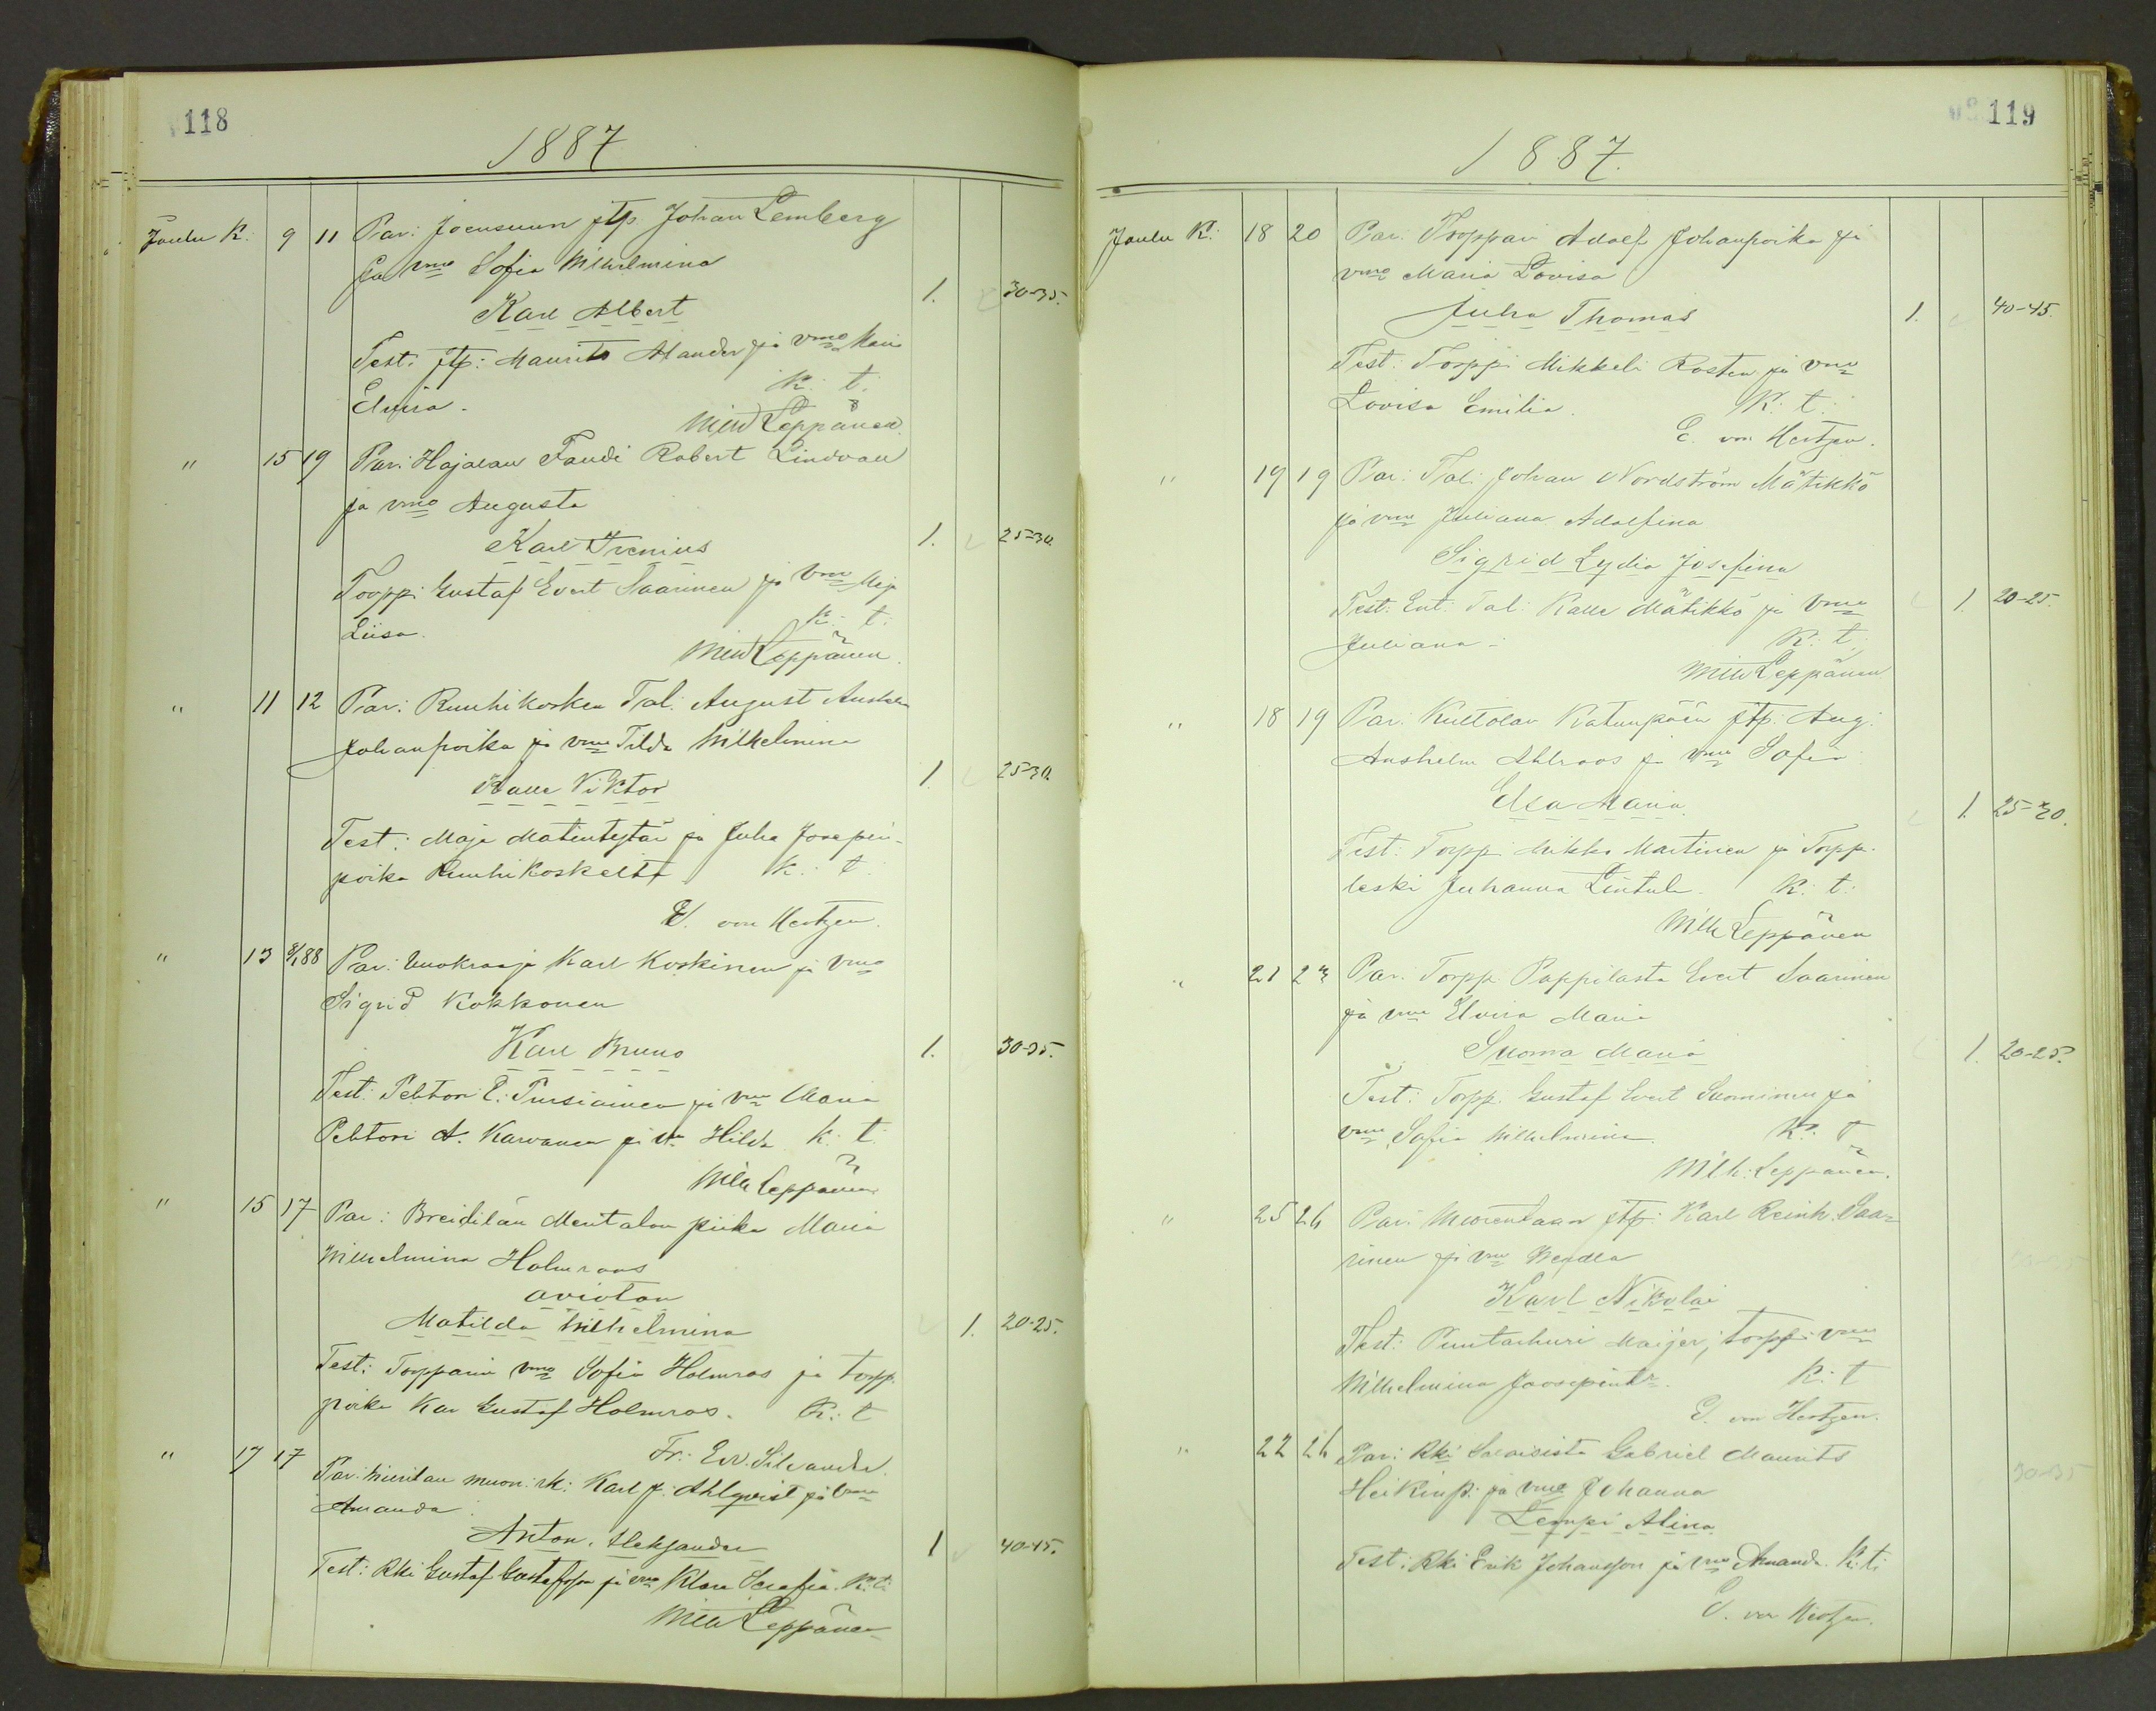 118
1887
Joulu K. 9 11 Par: Joensuun jtp. Johan Lemberg
ja vmo Sofia Wilhelmina
Karl Albert 1. 30-35.
Test: jtp: Maurits Alander ja vmo Maria
Elvira. K: t:
Wilh Leppänen
" 15 19 Par: Hajalan Faudi Robert Lindvall
ja vmo Augusta
Karl Irenius 1. 25-30.
Torpp: Gustaf Evert Saarinen ja vmo Maja
Liisa. K: t:
Wilh Leppänen.
" 11 12 Par: Ruuhikosken Tal: August
Johanpoika ja vmo Tilda Wilhelmina
Kalle Viktor 1. 25-30.
Test: Maja Matintytär ja Juha Josepin-
poika Ruuhikoskelta K: t:
E. von Hertzen.
" 13 8/1 88 Par: Vuokraaja Karl Koskinen ja vmo
Sigrid Kokkonen
Karl Bruno 1. 30-35.
Test: Pehtori E. Pursiainen ja vmo Maria
Pehtori A. Karvanen ja vmo Hilda K: t:
Wilh Leppänen
" 15 17 Par: Breidilän Mentalon piika Maria
Wilhelmina Holmroos
avioton
Matilda Wilhelmina 1. 20-25.
Test: Torpparin vmo Sofia Holmros ja torpp.
poika Karl Gustaf Holmros. K: t
Fr: Ed. Silvander.
" 17 17 Par: muon: rk: Karl J. Ahlqvist ja vmo
Amanda
Anton Aleksander 1 40-45.
Test: Rki Gustaf Gustafsson ja vmo Klara Serafia. K: t:
Wilh Leppänen
119
1887.
Joulu K: 18 20 Par: Torppari Adolf Johanpoika ja
vmo Maria Lovisa
Juho Thomas 1. 40-45.
Test: Torpp: Mikkeli Rosten ja vmo
Lovisa Emilia. K: t:
E. von Hertzen.
" 19 19 Par: Tal: Johan Nordström Mätikkö
ja vmo Juliana Adolfina
Sigrid Lydia Josefina
Test: Ent. Tal: Kalle Mätikkö ja vmo 1. 20-25.
Juliana: K: t:
Wilh Leppänen
" 18 19 Par: Kultolan Katunpään jtp: Aug:
Anshelm Ahlroos ja vmo Sofia
Elsa Maria. 1. 25-30.
Test: Torpp: Mikko Martinen ja Torpp.
leski Juhanna Lintula. K: t:
Wilh Leppänen
" 21 23 Par: Torpp. Pappilasta Evert Saarinen
ja vmo Elvira Maria
Suoma Maria 1. 20-25.
Test: Torpp. Gustaf Evert Suominen ja
vmo Sofia Wilhelmina. K: t
Wilh: Leppänen.
" 25 26 Par: jtp: Karl Reinh. Saa-
rinen ja vmo Wendla
Karl Nikolai
Test: Puutarhuri Meijer, torpp: vmo
Wilhelmina Joosepintr. K: t
E. von Hertzen.
" 22 26 Par: Rki Salaisista Gabriel Maurits
Heikinp: ja vmo Johanna 30-35
Lempi Alina
Test: Rki Erik Johansson ja vmo Amanda. K: t:
E. von Hertzen.